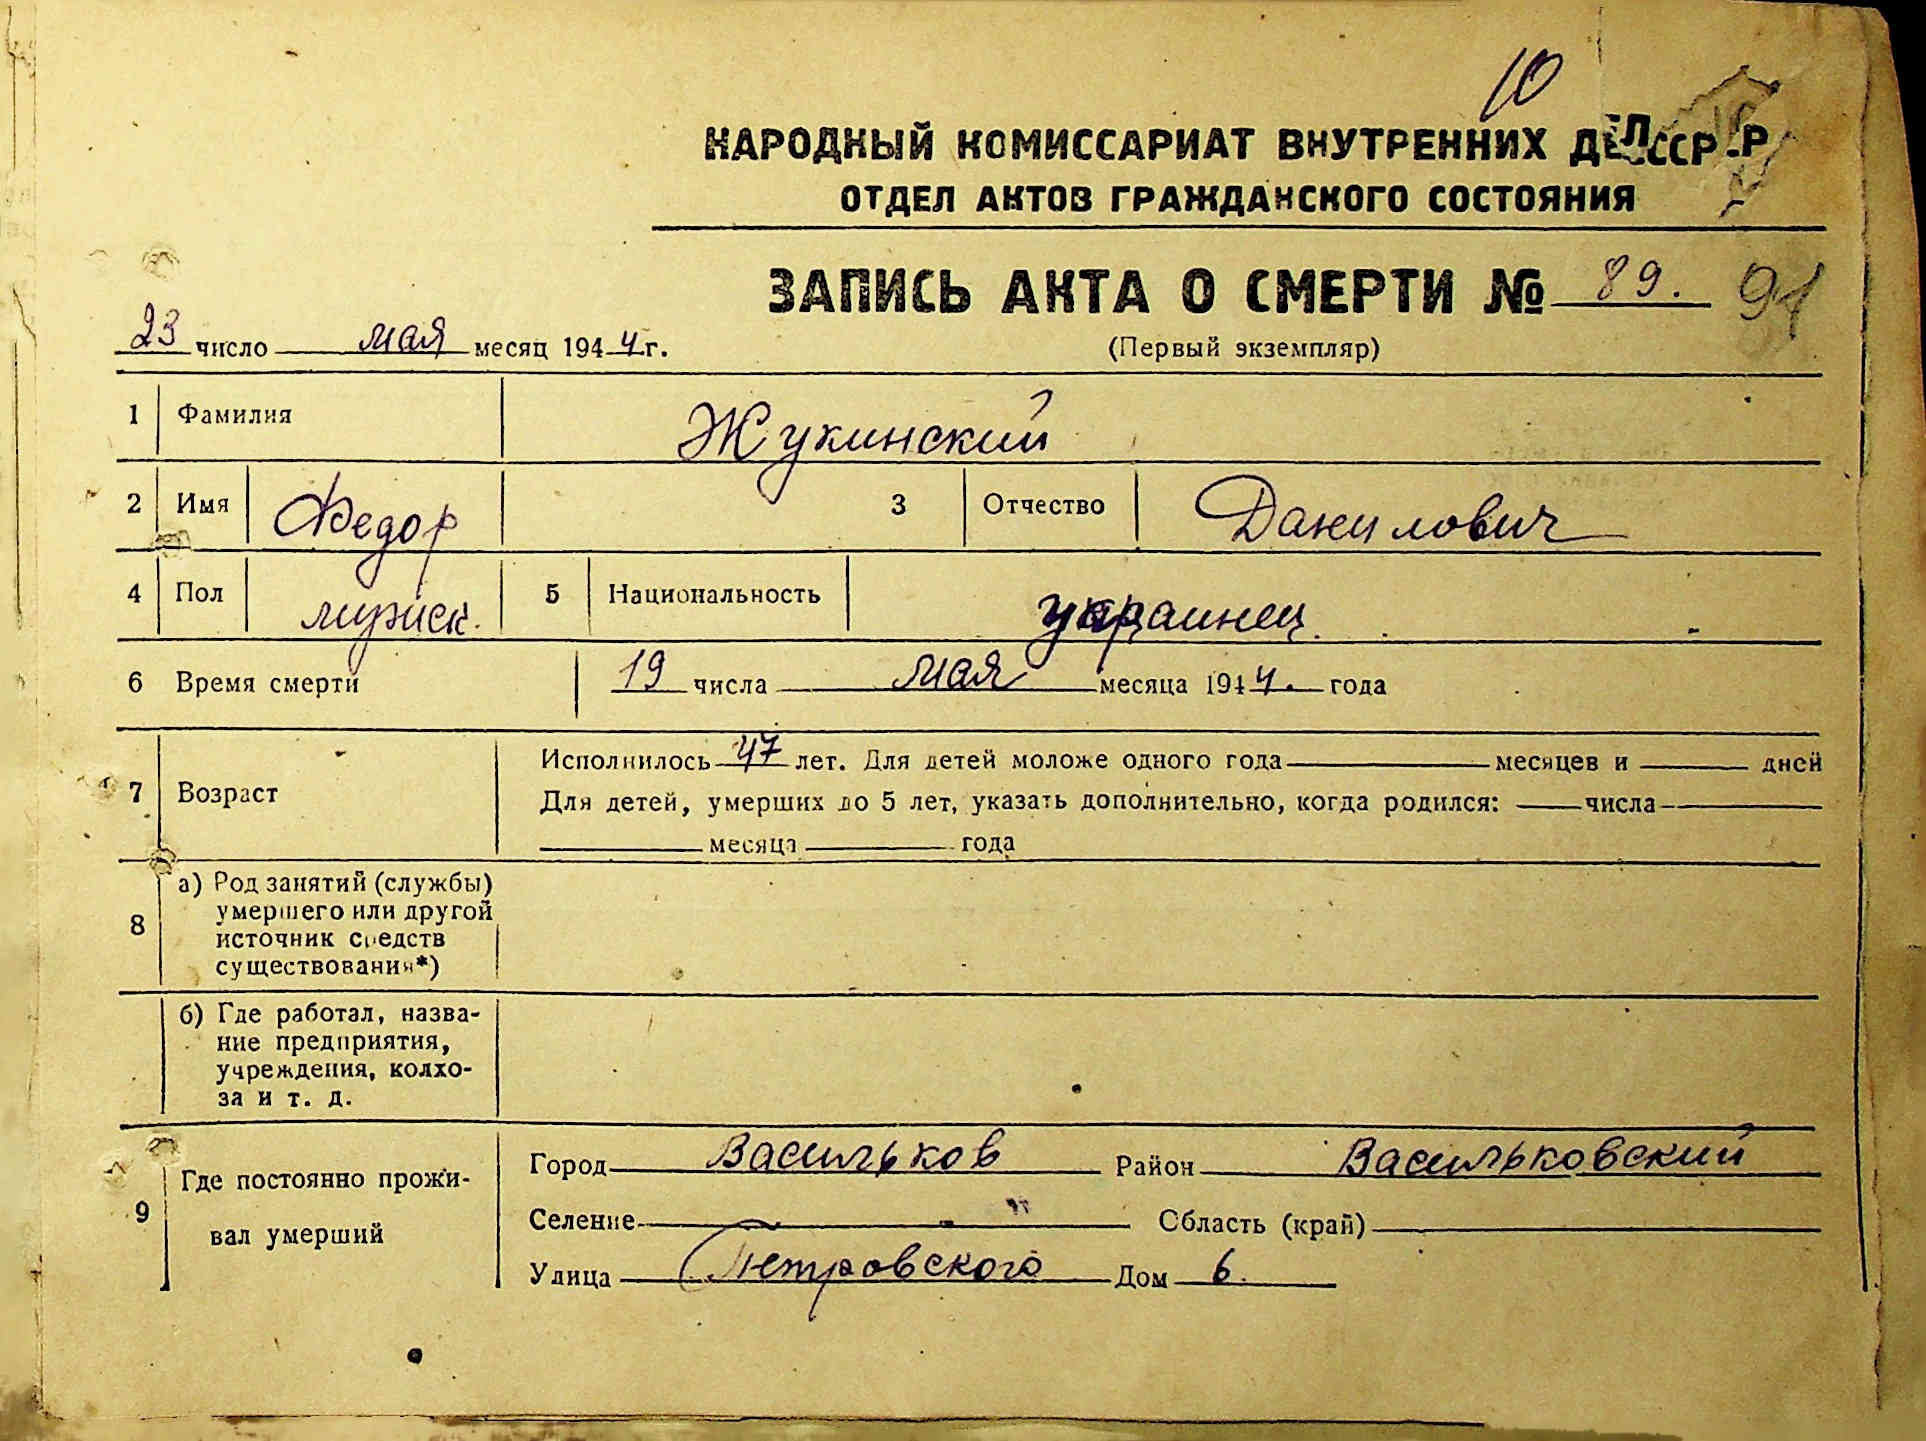 10
НАРОДНЫЙ КОМИССАРИАТ ВНУТРЕННИХ ДЕЛ СССР
ОТДЕЛ АКТОВ ГРАЖДАНСКОГО СОСТОЯНИЯ
ЗАПИСЬ АКТА О СМЕРТИ № 89. 91
23 число мая месяц 1944 г.
(Первый экземпляр)
1 Фамилия Жукинский
2 Имя Федор 3 Отчество Данилович
4 Пол мужск. 5 Национальность украинец.
6 Время смерти 19 числа мая месяца 1944. года
7 Возраст
Исполнилось 47 лет. Для детей моложе одного года месяцев и дней
Для детей, умерших до 5 лет, указать дополнительно, когда родился: числа
месяца года
8 а) Род занятий (службы)
умершего или другой
источник средств
существования*)
б) Где работал, назва-
ние предприятия,
учреждения, колхо-
за и т. д.
9 Где постоянно прожи-
вал умерший
Город Васильков Район Васильковский
Селение - Область (край)
Улица Петровского Дом 6.